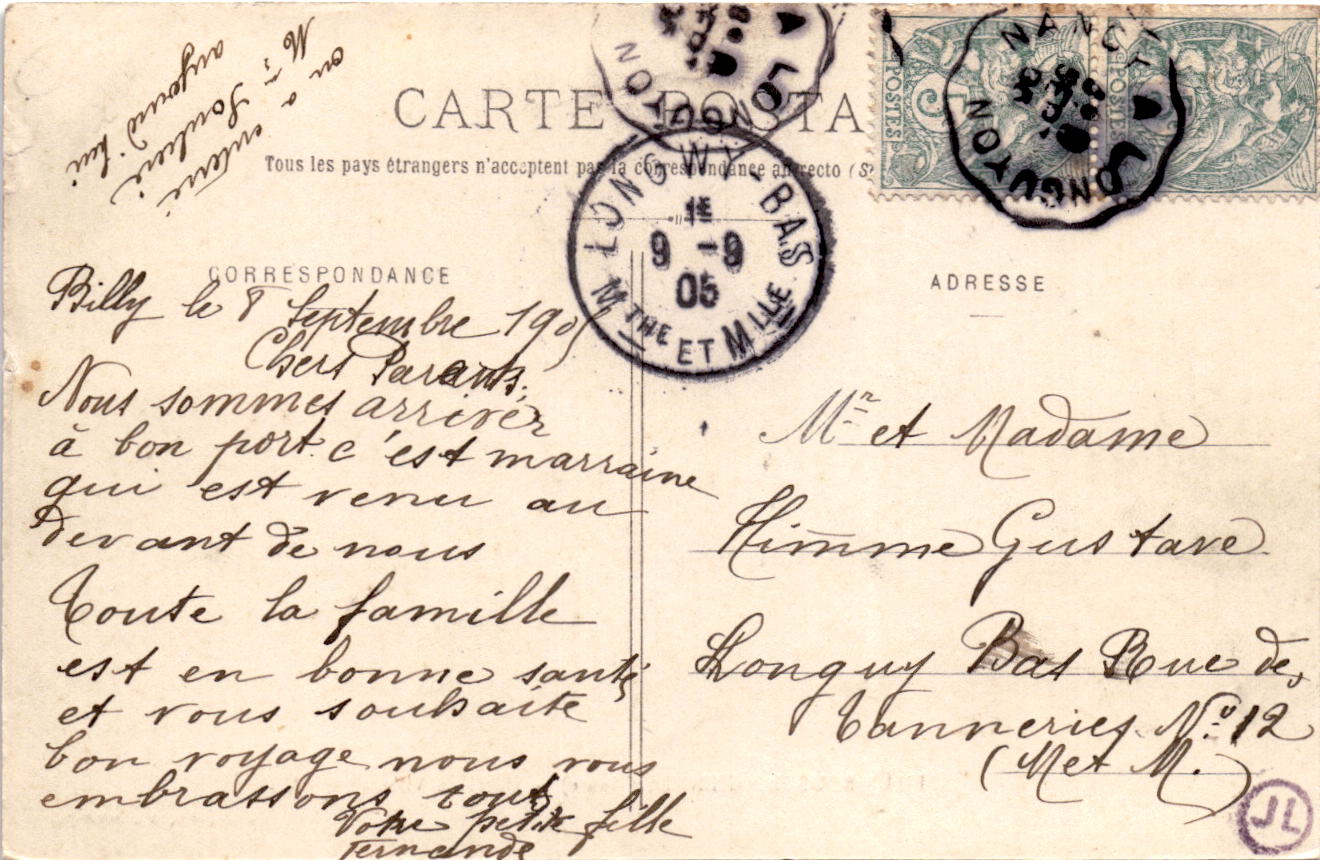 CARTE POSTA
Tous les pays étrangers n'acceptent pas la correspondance au recto (S
CORRESPONDANCE
ADRESSE
on
a enterré
Mr
aujourd'hui
Billy le 8 Septembre 1905
Chers Parents,
Nous sommes arriver
à bon port c'est marraine
qui est venu au
devant de nous
Toute la famille
est en bonne santé
et vous souhaite
bon voyage nous vous
embrassons tous
Votre petite fille
Fernande
Mr et Madame
Himme Gustave
Longuy Bas Rue des
Tanneries No 12
(Met M.)
NANCY A LONGUYON
POSTES
POSTES
A LONGUYON
LONGWY-BAS
1E
9 -9
05
MTHE ET MLLE
JL